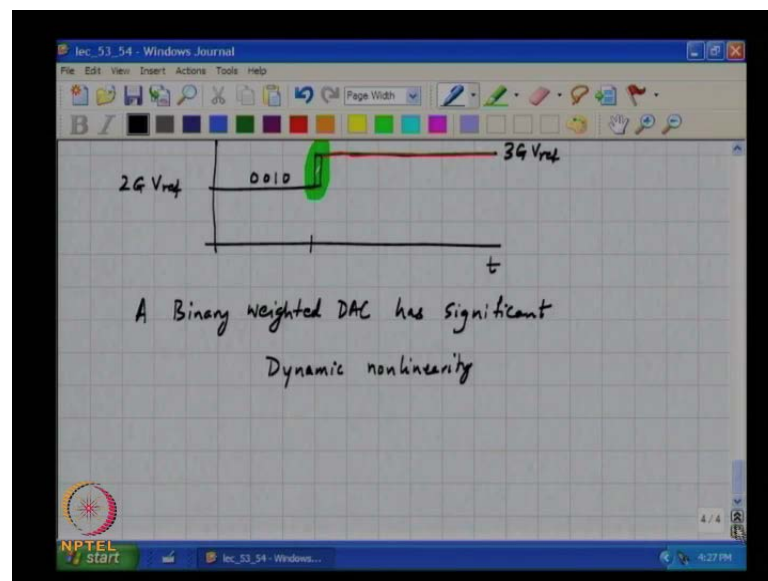 lec_53_54 - Windows Journal
File Edit View Insert Actions Tools Help
Page Width
B I
3G Vref
2G Vref 0010
t
A Binary weighted DAC has significant
Dynamic nonlinearity
4/4
NPTEL
start lec_53_54 - Windows... 4:27 PM